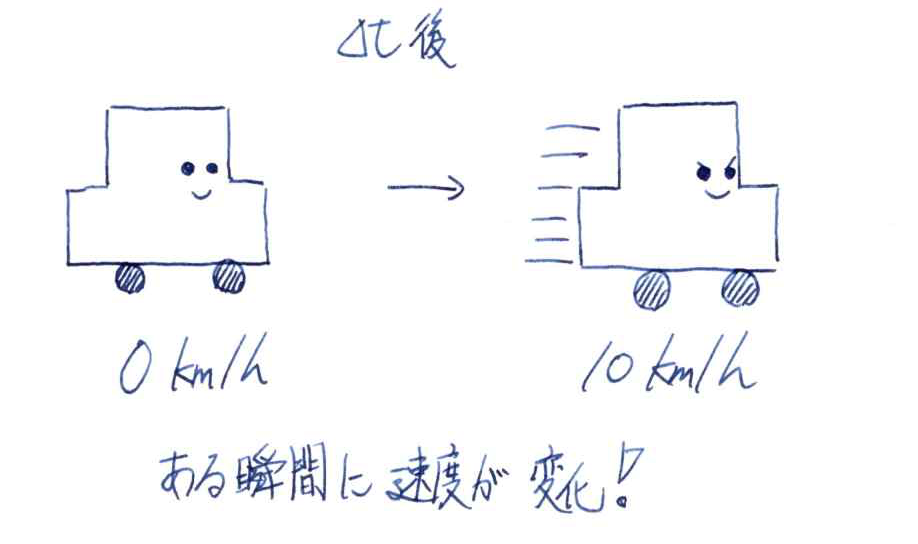 Δt後
0 km/h
10 km/h
ある瞬間に速度が変化!